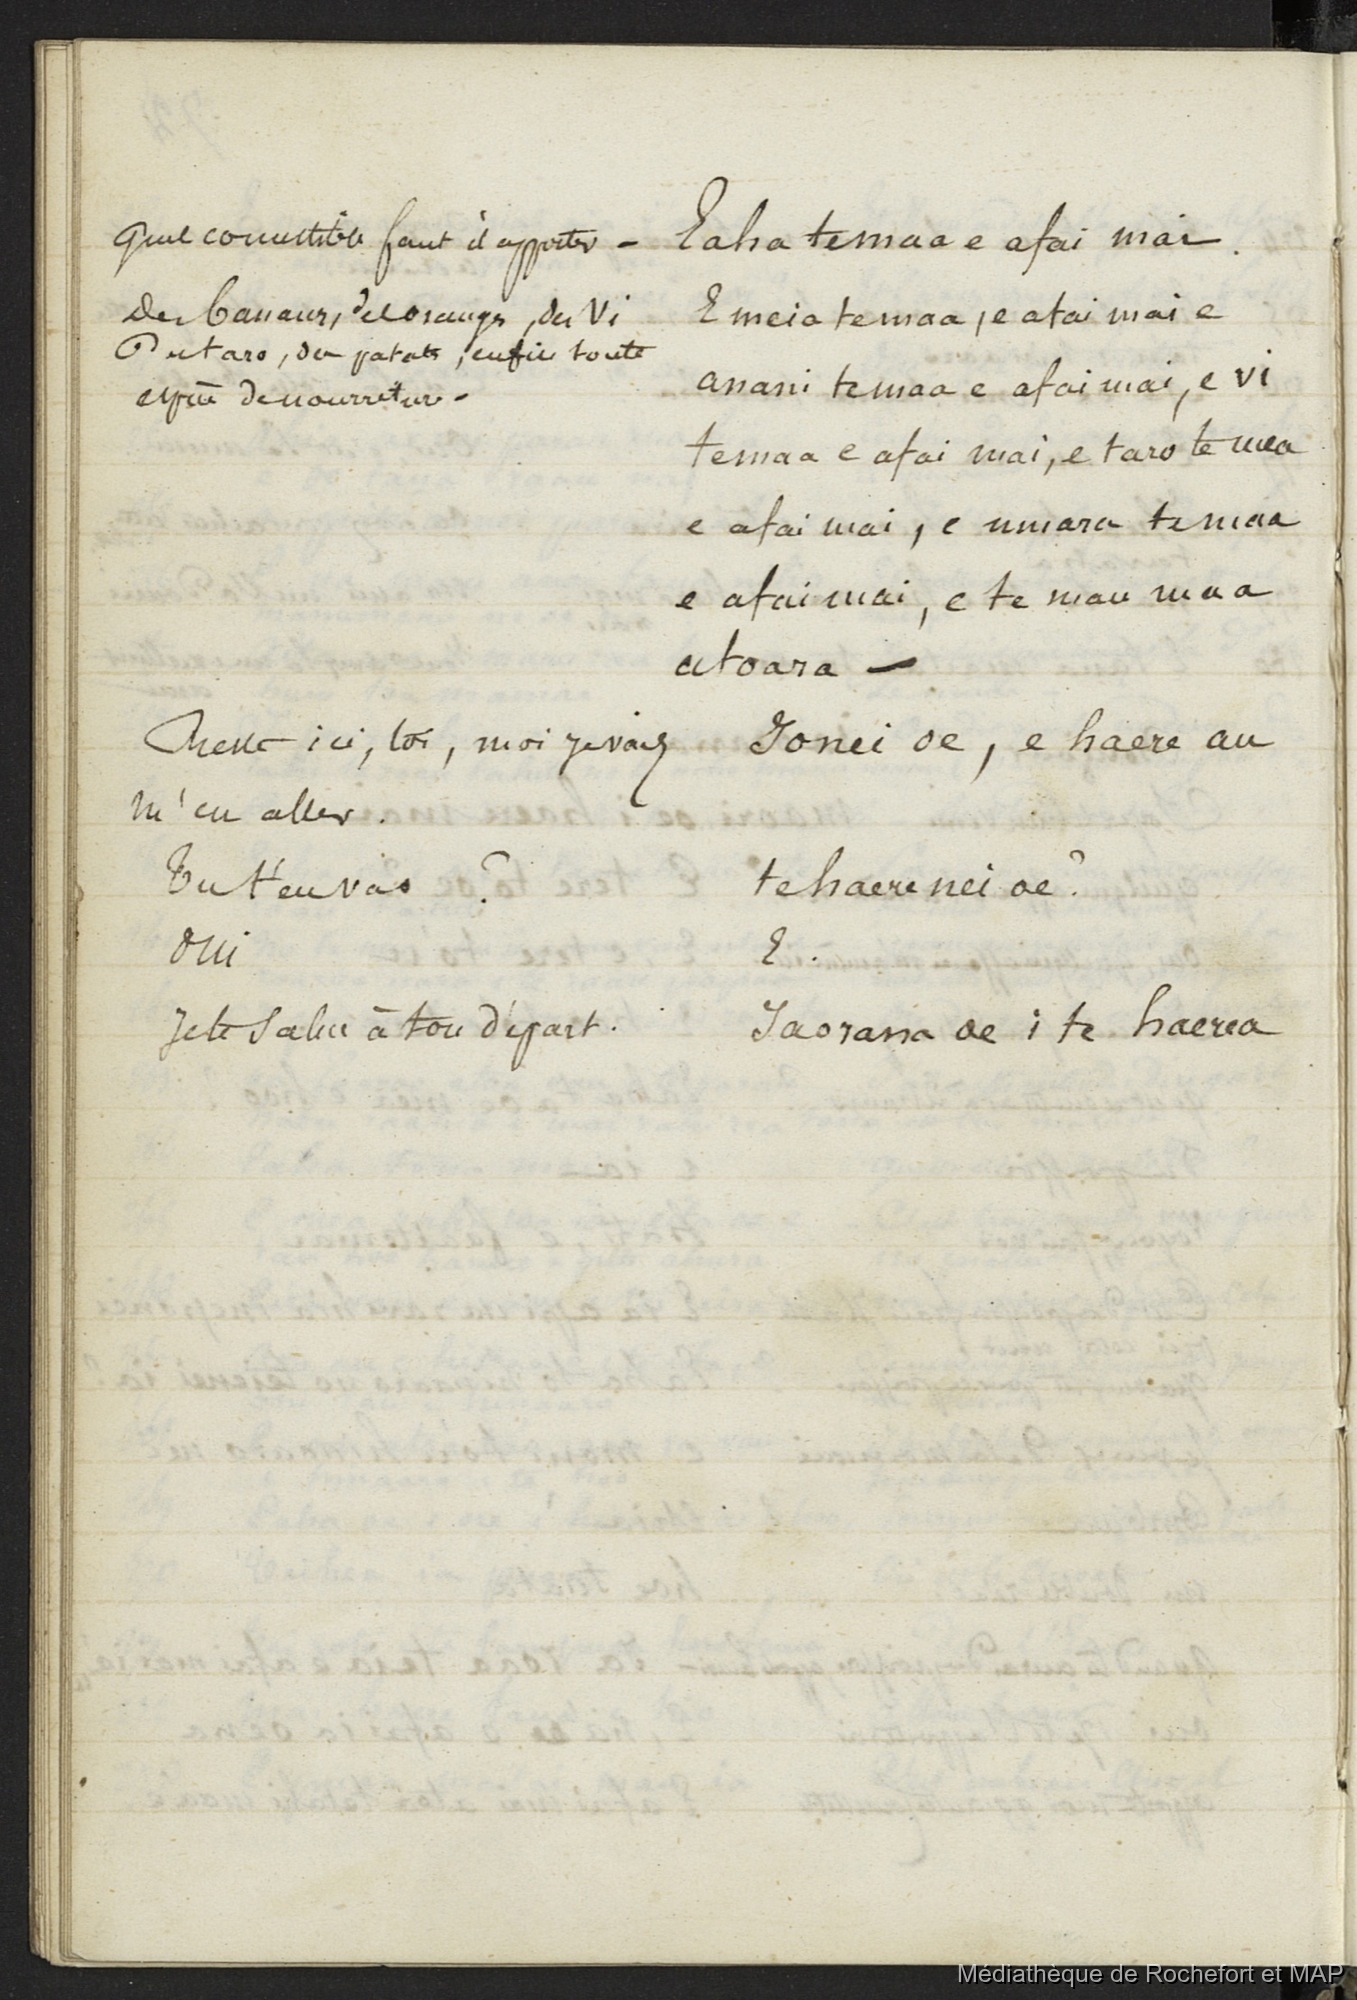 quel comestible faut il apporter - Eaha te maa e afai mai.
Des bananes, des oranges, des Vi E meia te maa, e afai mai e
Du taro, des patates, enfin toute anani te maa e afai mai, e vi
espèce de nourriture - te maa e afai mai, e taro te maa
e afai mai, e umara te maa
e afai mai, e te mau maa
atoara -
Reste ici, toi, moi je vais Ionei oe, e haere au
m'en aller.
Tu t'en vas ? te haere nei oe?
oui E.
Je te salue à ton départ. Iaorana oe i te haerea
Médiathèque de Rochefort et MAP